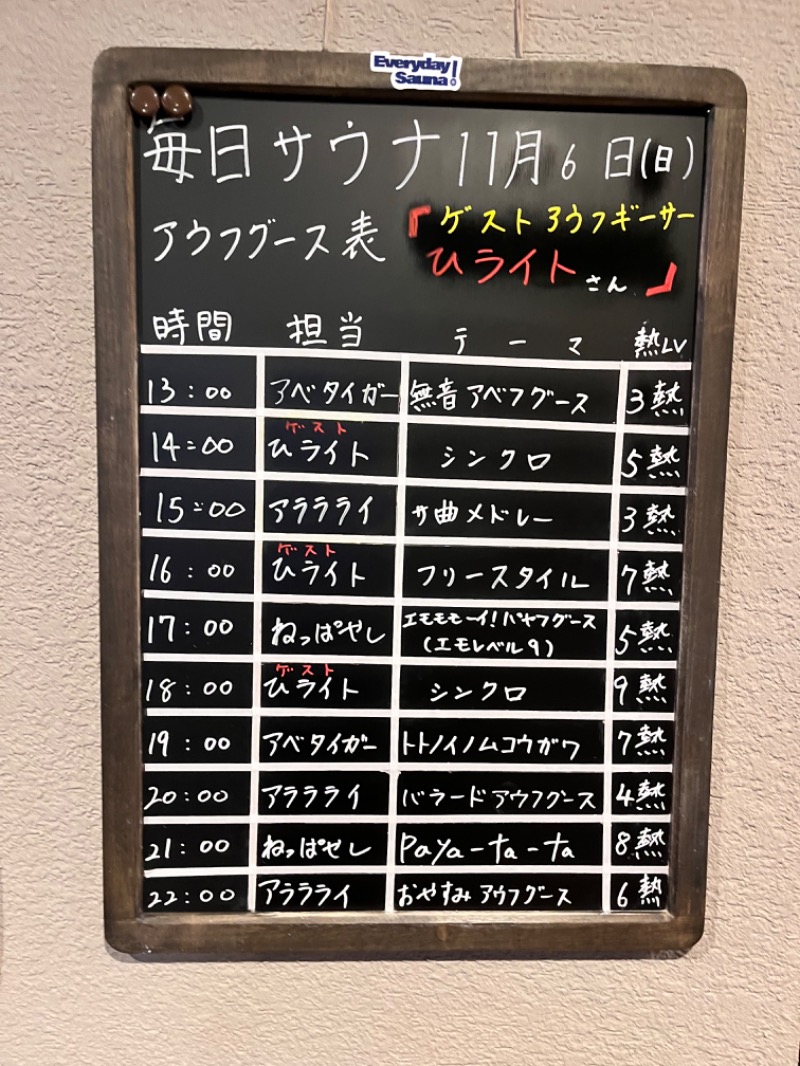 Everyday
Sauna!
毎日サウナ11月6日(日)
アウフグース表
『ゲストアウフギーサー
ひライトさん』
時間 担当 テーマ 熱LV
13:00 アベタイガー 無音アベフグース 3熱
14:00 ゲスト ひライト シンクロ 5熱
15:00 アラララライ サ曲メドレー 3熱
16:00 ゲスト ひライト フリースタイル 7熱
17:00 ねっぱやし エモモモーイ!パヤフグース (エモレベル9) 5熱
18:00 ゲスト ひライト シンクロ 9熱
19:00 アベタイガー トトノイノムコウガワ 7熱
20:00 アララライ バラードアウフグース 4熱
21:00 ねっぱやし Paya-ta-ta 8熱
22:00 アララライ おやすみアウフグース 6熱